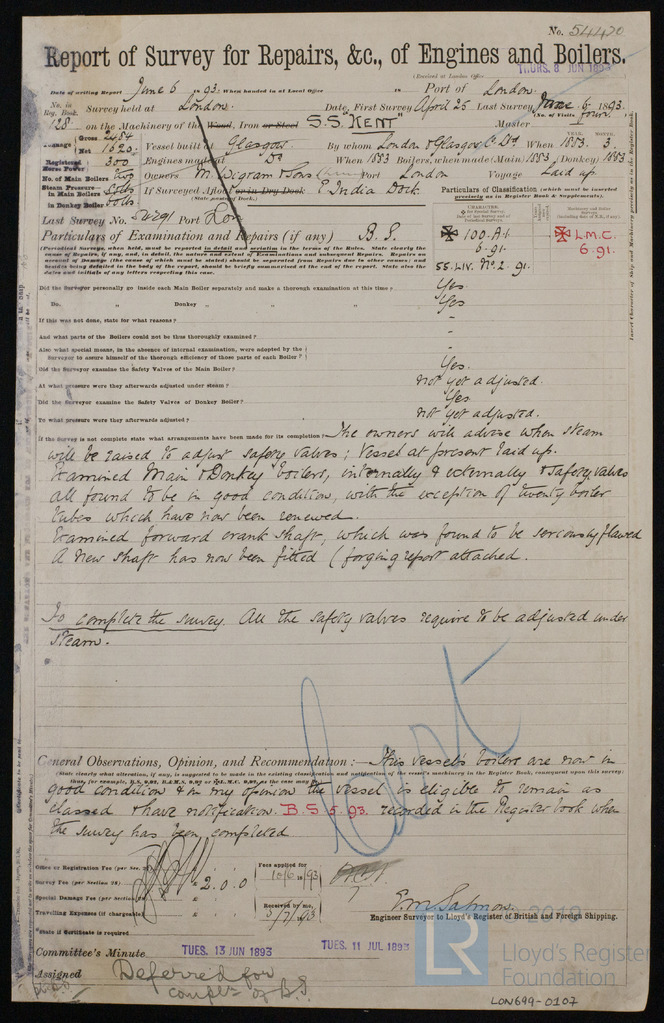 No. 54420
Report of Survey for Repairs, &c., of Engines and Boilers.
THURS. 8 JUN 1893
(Received at London Office
Date of writing Report June 6 1893. When handed in at Local Office 18 Port of London.
No. in Reg. Book. Survey held at London. Date, First Survey April 25 Last Survey June 6 1893.
(No. of Visits four.)
128 on the Machinery of the Wood, Iron or Steel S.S. "KENT" Master
Tonnage Gross 2484 Net 1620 Vessel built at Glasgow By whom London & Glasgow Co Ld. When 1883 . 3
YEAR. MONTH.
Registered Horse Power 300 Engines made at Do When 1883 Boilers, when made (Main) 1883 (Donkey) 1883
No. of Main Boilers two Owners M. Wigram & Sons Port London Voyage Laid up.
Steam Pressure in Main Boilers 80lbs If Surveyed Afloat or in Dry Dock E India Dock.
in Donkey Boiler 60lbs (State name of Dock.)
Last Survey No. 52291 Port Lon
Particulars of Classification (which must be inserted precisely as in Register Book & Supplements).
100.A1
6.91.
SS. LIV. No. 2. 91.
L.M.C.
6.91.
Particulars of Examination and Repairs (if any) B.S.
(Periodical Surveys, when held, must be reported in detail and seriatim in the terms of the Rules. State clearly the cause of Repairs, if any, and, in detail, the nature and extent of Examinations and subsequent Repairs. Repairs on account of Damage (the cause of which must be stated) should be separated from Repairs due to other causes; and besides being detailed in the body of the report, should be briefly summarised at the end of the report. State also the dates and initials of any letters respecting this case.)
Did the Surveyor personally go inside each Main Boiler separately and make a thorough examination at this time? Yes
Do. " Donkey " " " Yes
If this was not done, state for what reasons? -
And what parts of the Boilers could not be thus thoroughly examined? -
Also what special means, in the absence of internal examination, were adopted by the Surveyor to assure himself of the thorough efficiency of those parts of each Boiler? -
Did the Surveyor examine the Safety Valves of the Main Boiler? Yes.
At what pressure were they afterwards adjusted under steam? not yet adjusted.
Did the Surveyor examine the Safety Valves of Donkey Boiler? Yes
To what pressure were they afterwards adjusted? not yet adjusted.
If the Survey is not complete state what arrangements have been made for its completion The owners will advise when steam
will be raised to adjust safety valves; vessel at present laid up.
Examined Main & Donkey boilers, internally & externally & safety valves
all found to be in good condition, with the exception of twenty boiler
tubes which have now been renewed.
Examined forward crank shaft, which was found to be seriously flawed
A new shaft has now been fitted (forging report attached.
To complete the survey. All the safety valves require to be adjusted under
steam.
General Observations, Opinion, and Recommendation:— This vessel's boilers are now in
(State clearly what alteration, if any, is suggested to be made in the existing classification and notification of the vessel's machinery in the Register Book, consequent upon this survey;
good condition & in my opinion the vessel is eligible to remain as
classed & have notification. B.S 5.93. recorded in the Register book when
the survey has been completed
Office or Registration Fee (per Sec. 28)
Survey Fee (per Section 28) £ 2 . 0 . 0
Special Damage Fee (per Section
Travelling Expenses (if chargeable)
Fees applied for
10/6/1893
Received by me,
5/7/1893
E.M. Salmon.
Engineer Surveyor to Lloyd's Register of British and Foreign Shipping.
*State if Certificate is required
Committee's Minute TUES. 13 JUN 1893 TUES. 11 JUL 1893
Assigned Deferred for
compl. of B.S.
LR
© 2019
Lloyd's Register
Foundation
LON699-0107